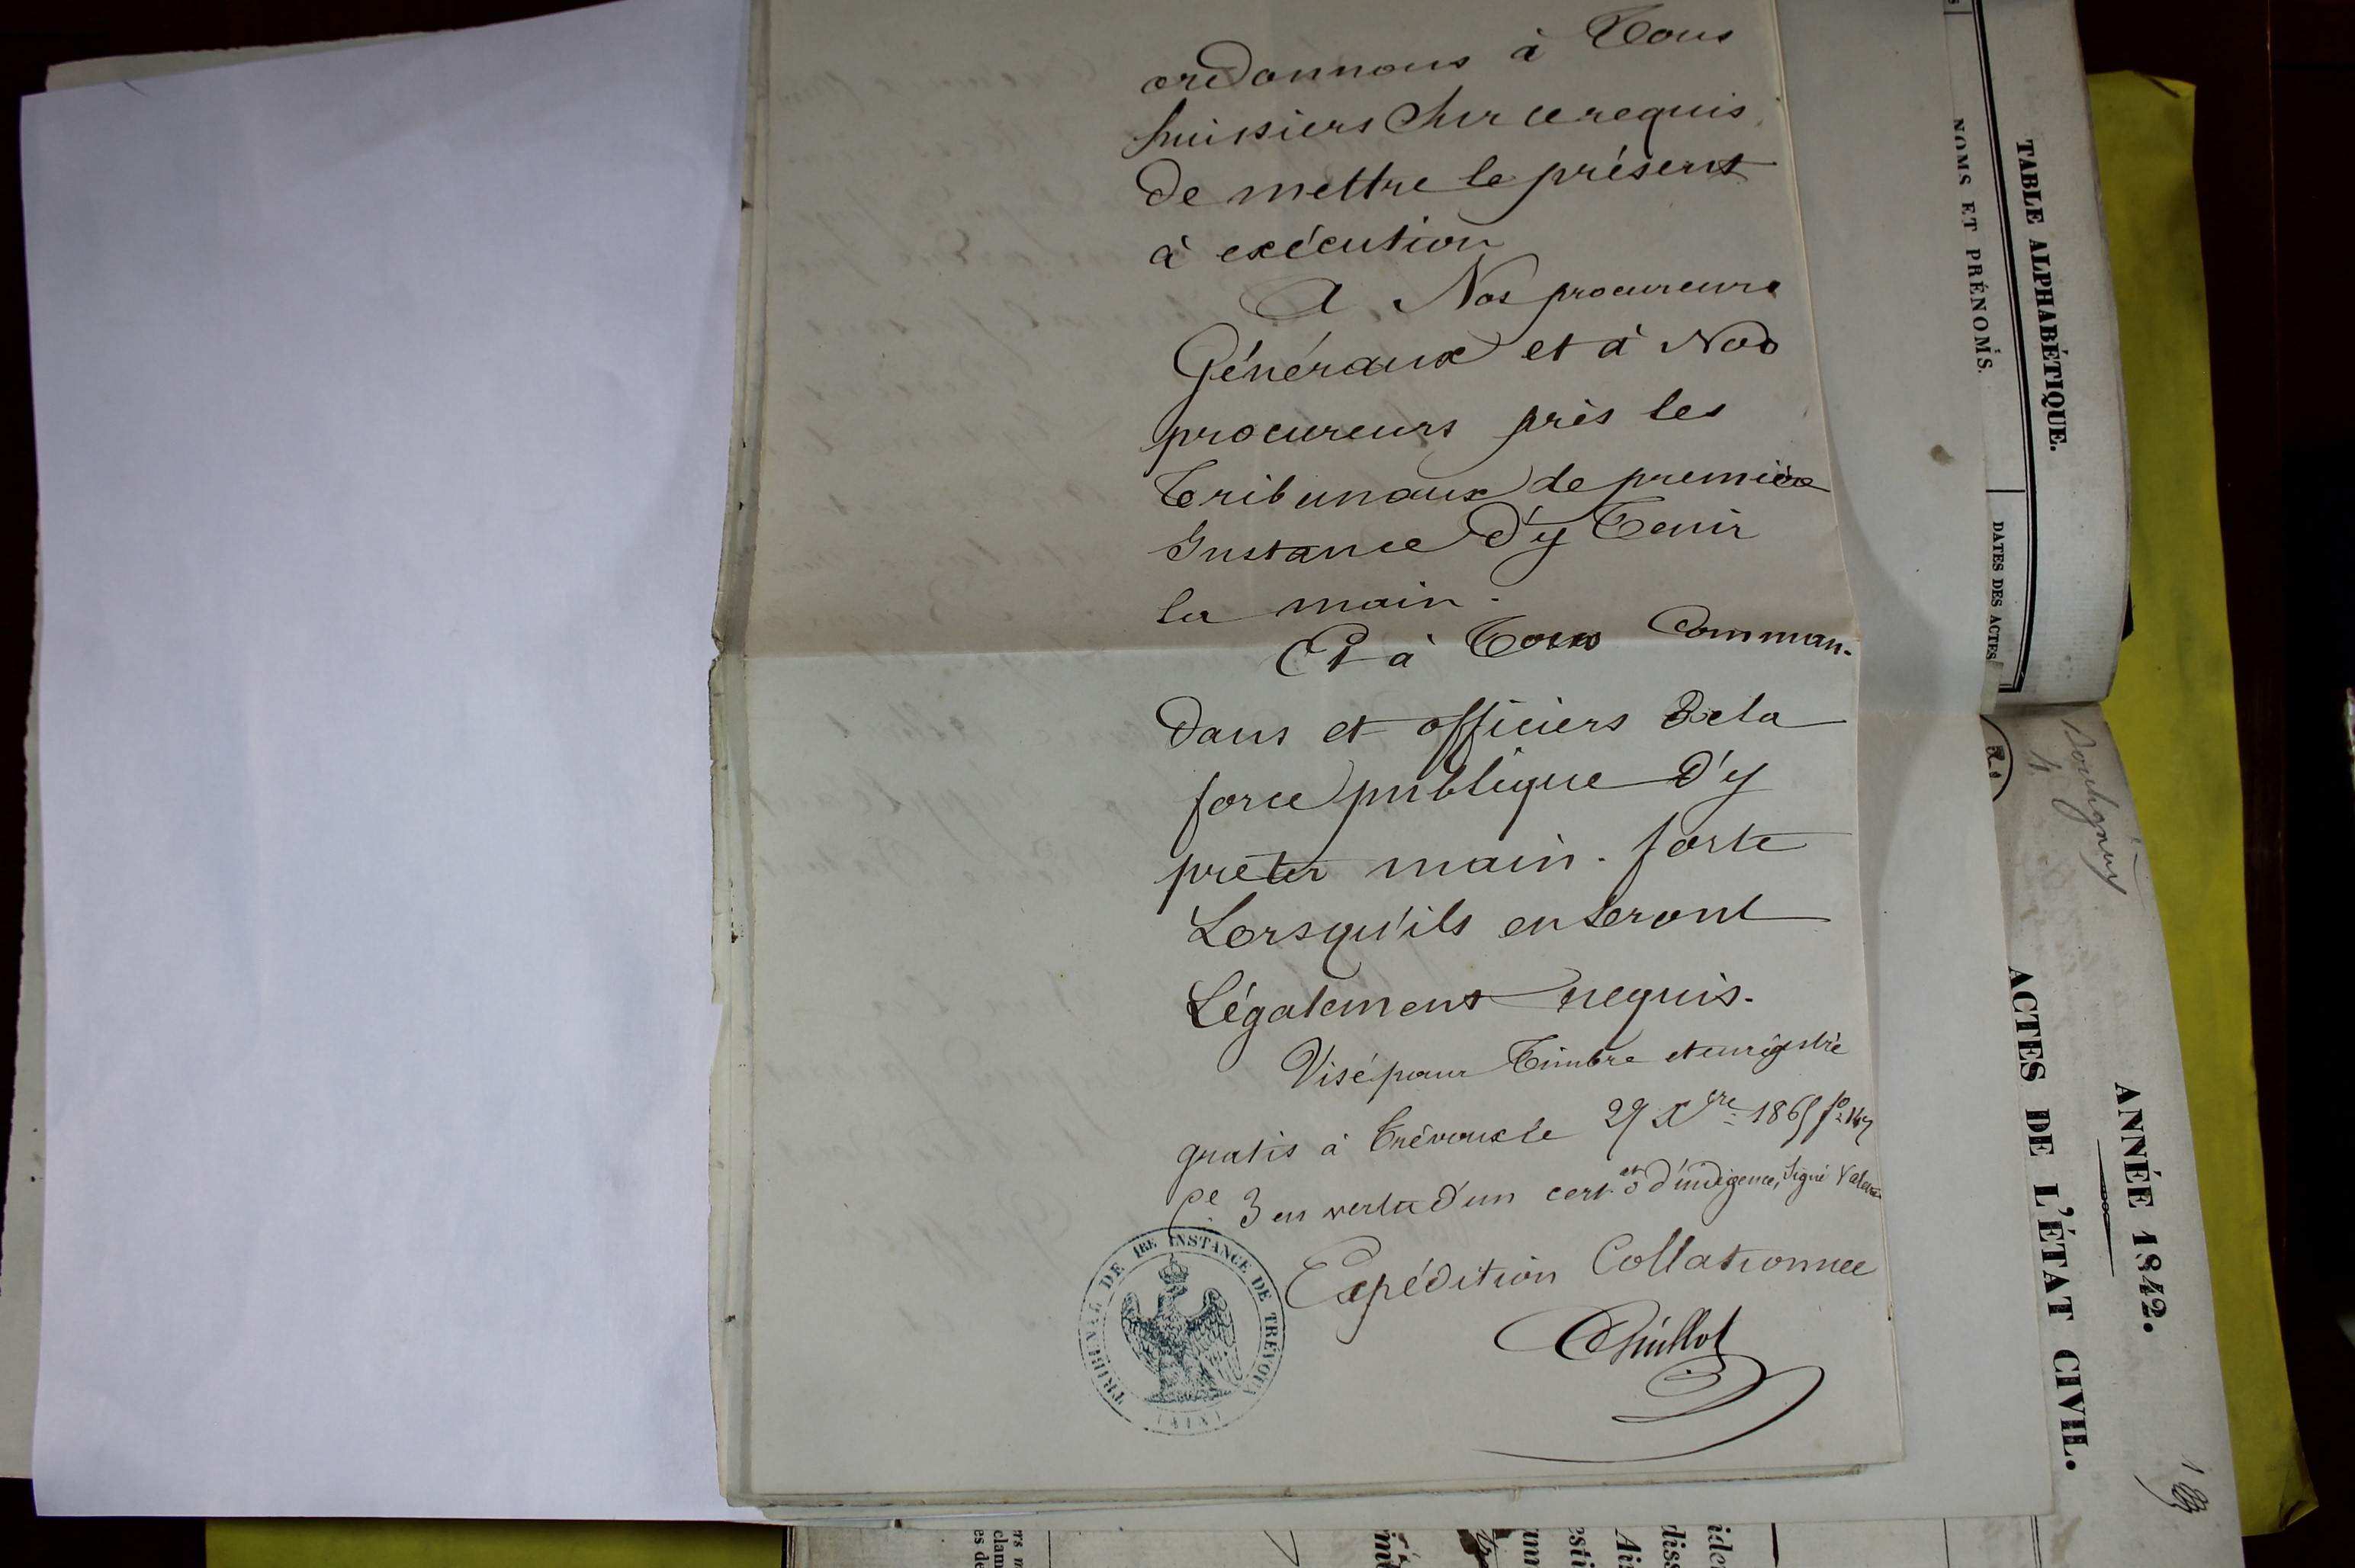 ordonnons à Tous
huissiers Sur ce requis
de mettre le présent
à exécution
A Nos procureurs
Généraux et à Nos
procureurs près les
Tribunaux de première
Instance d'y Tenir
la main.
Et à Tous Comman-
dans et officiers de la
force publique d'y
prêter main-forte
Lorsqu'ils en seront
Légalement requis.
Visé pour Timbre et enregistré
gratis à Trévoux le 29 Xbre 1865 fo 147
Ce 3 en vertu d'un cert. d'indigence, Signé
Expédition Collationnée
TRIBUNAL DE 1RE INSTANCE DE TRÉVOUX
(AIN)
TABLE ALPHABÉTIQUE.
NOMS ET PRÉNOMS.
DATES DES ACTES
ANNÉE 1842.
ACTES DE L'ÉTAT CIVIL.